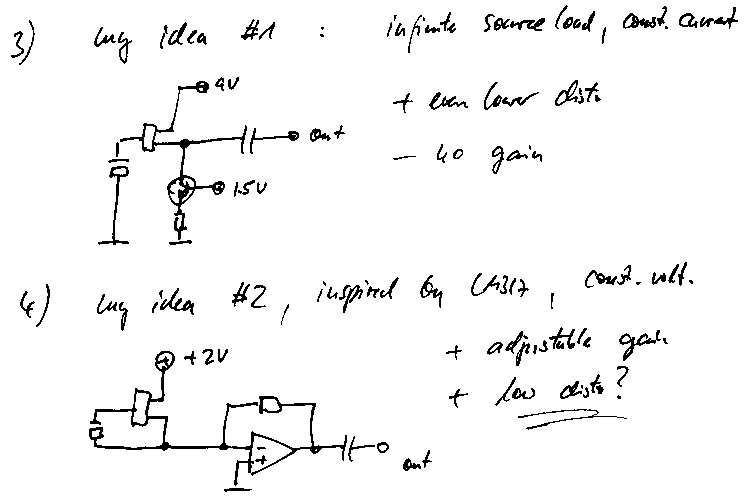 3) my idea #1 : infinite source load, const. current
9V
+ even lower disto
out
- no gain
1.5V
4) my idea #2, inspired by LM317, const. volt.
+ adjustable gain
+2V
+ low disto?
-
+
out